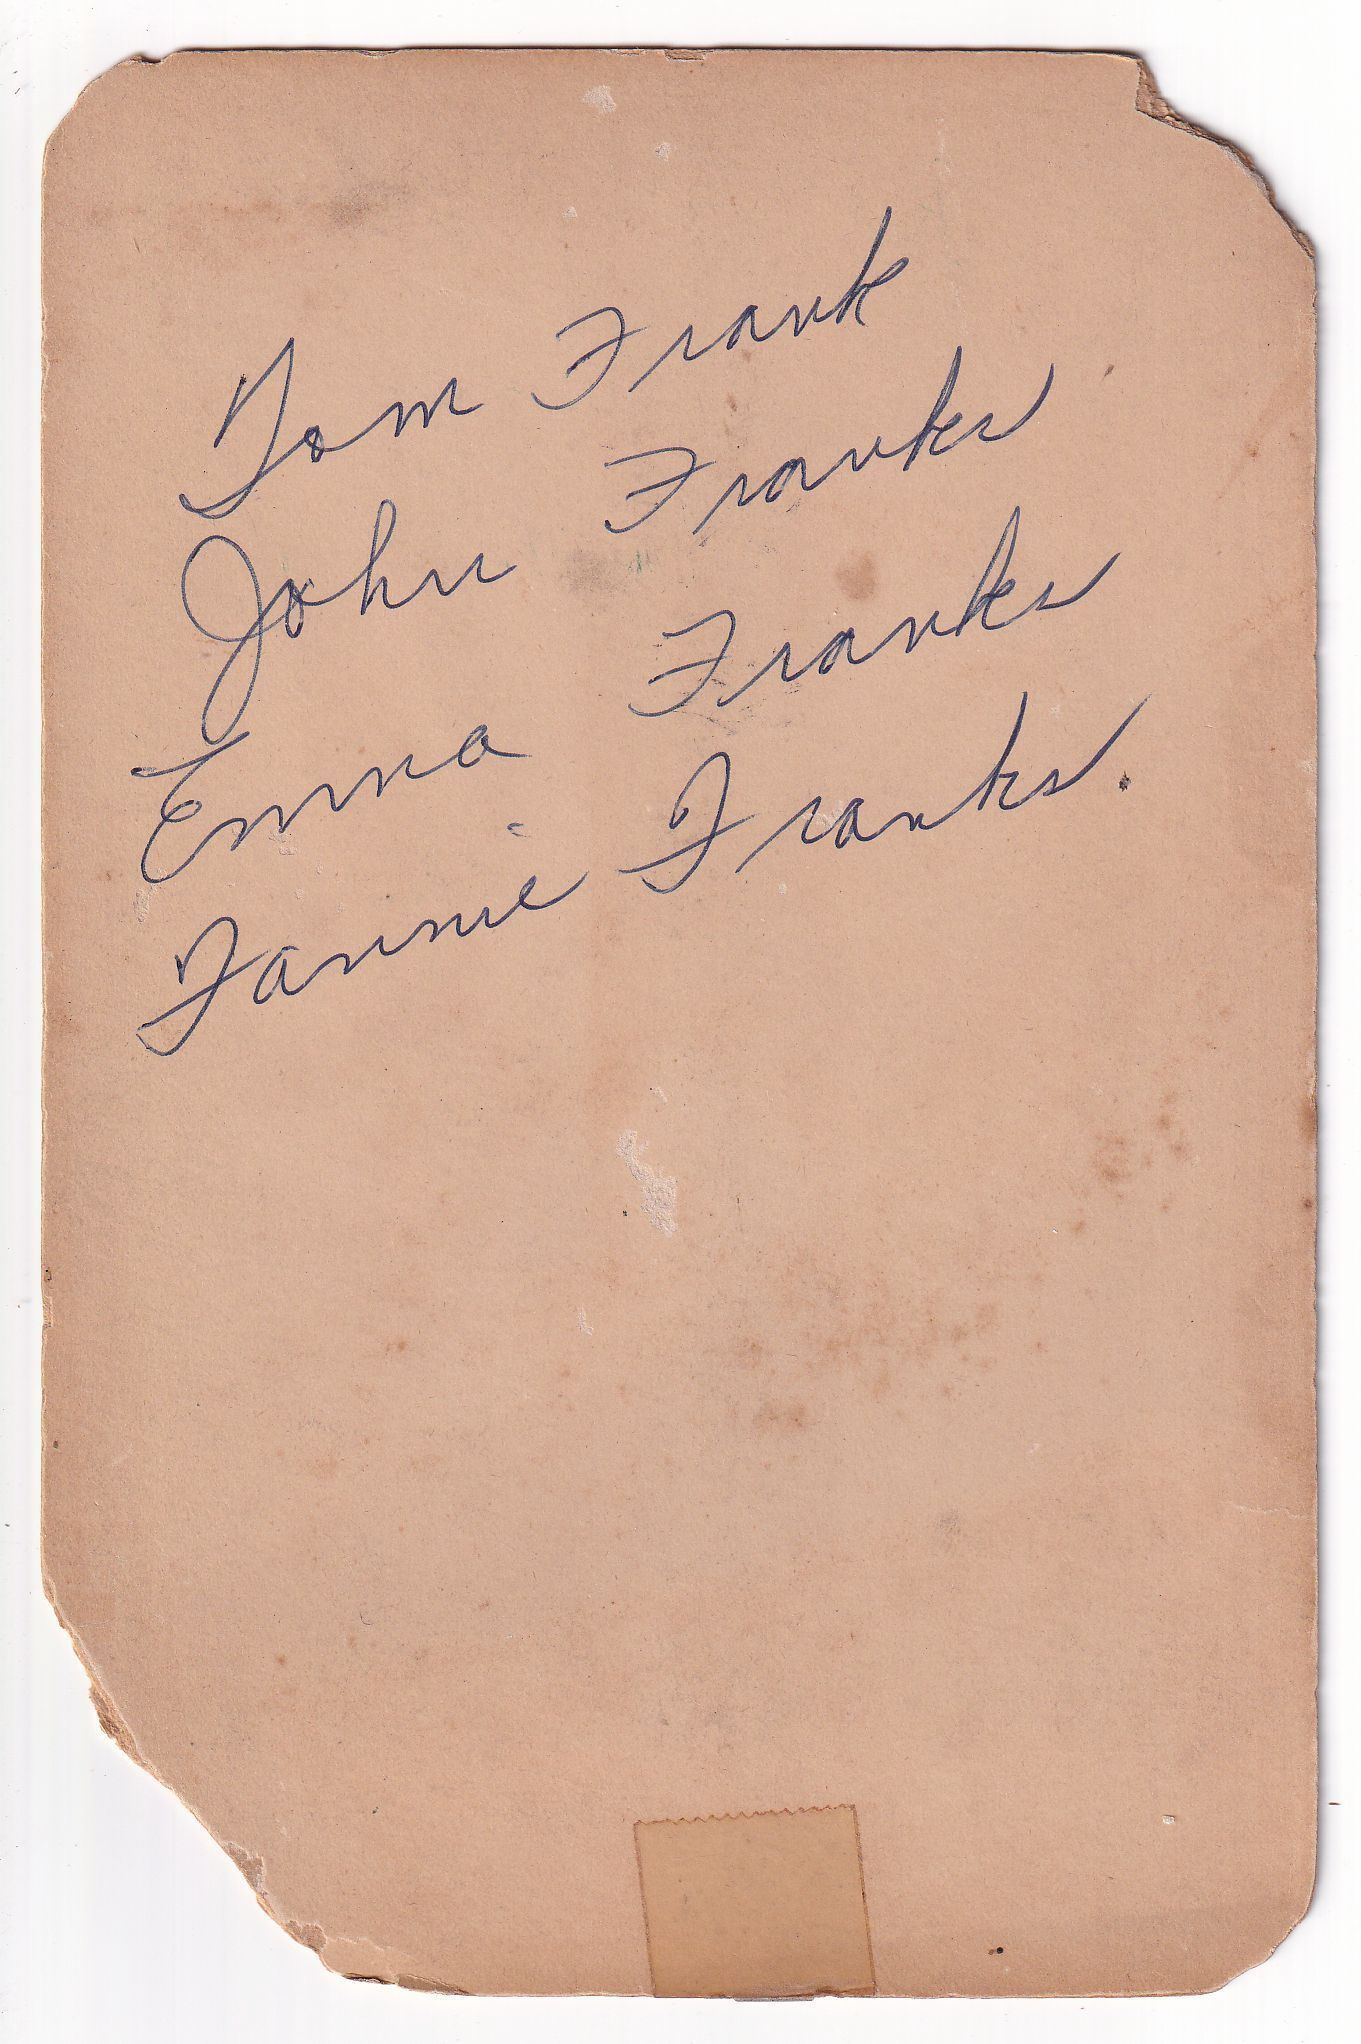 Tom Frank
John Franks
Emma Franks
Fannie Franks.